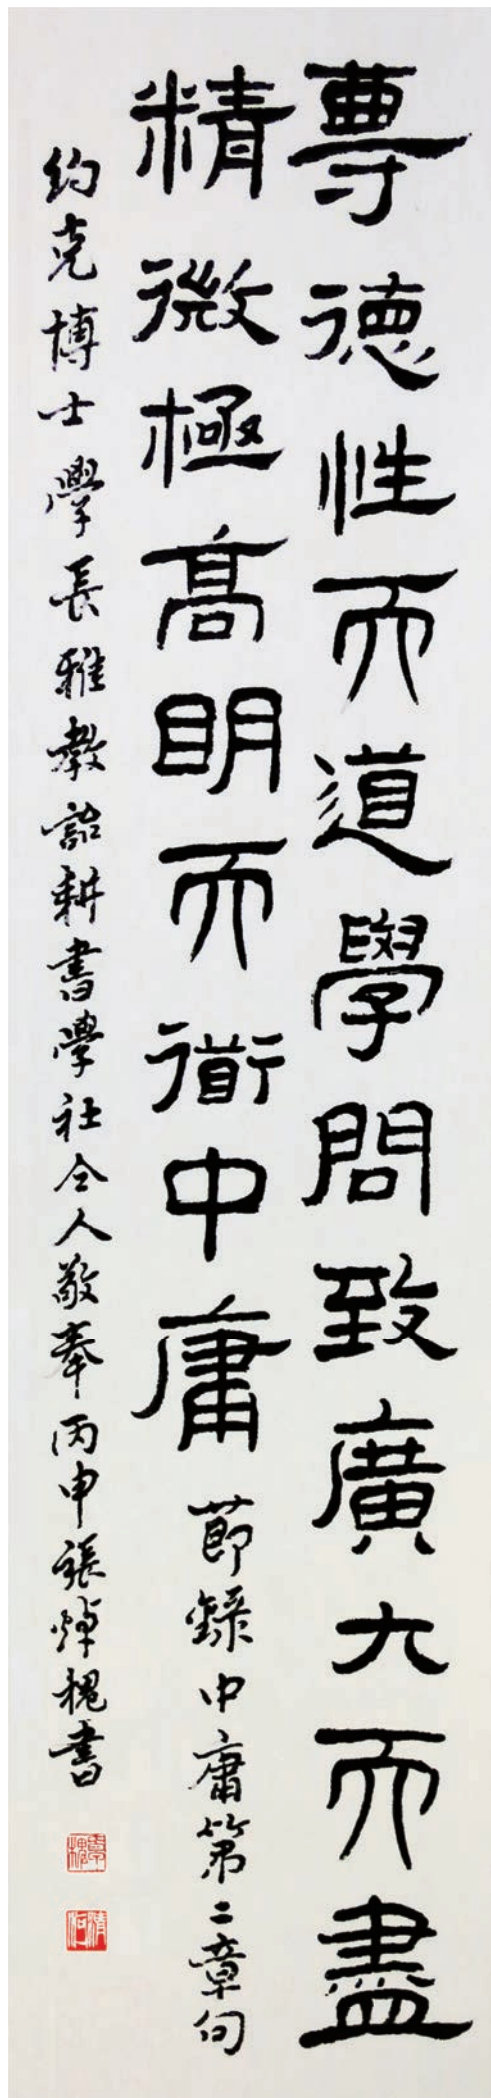 尊德性而道學問致廣大而盡
精微極高明而衜中庸 節錄中庸第二章句
約克博士學長雅教詒耕書學社仝人敬奉丙申張焯槐書
清河